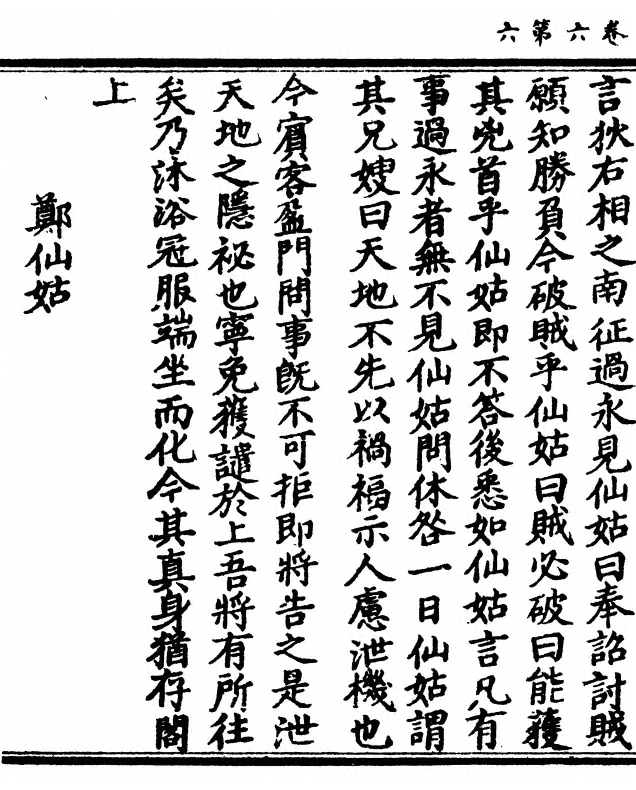 卷六第六
言狄右相之南征過永見仙姑曰奉詔討賊
願知勝負今破賊乎仙姑曰賊必破曰能獲
其兇首乎仙姑即不答後悉如仙姑言凡有
事過永者無不見仙姑問休咎一日仙姑謂
其兄嫂曰天地不先以禍福示人慮泄機也
今賓客盈門問事旣不可拒即將告之是泄
天地之隱祕也寧免獲譴於上吾將有所往
矣乃沐浴冠服端坐而化今其真身猶存閣
上
鄭仙姑